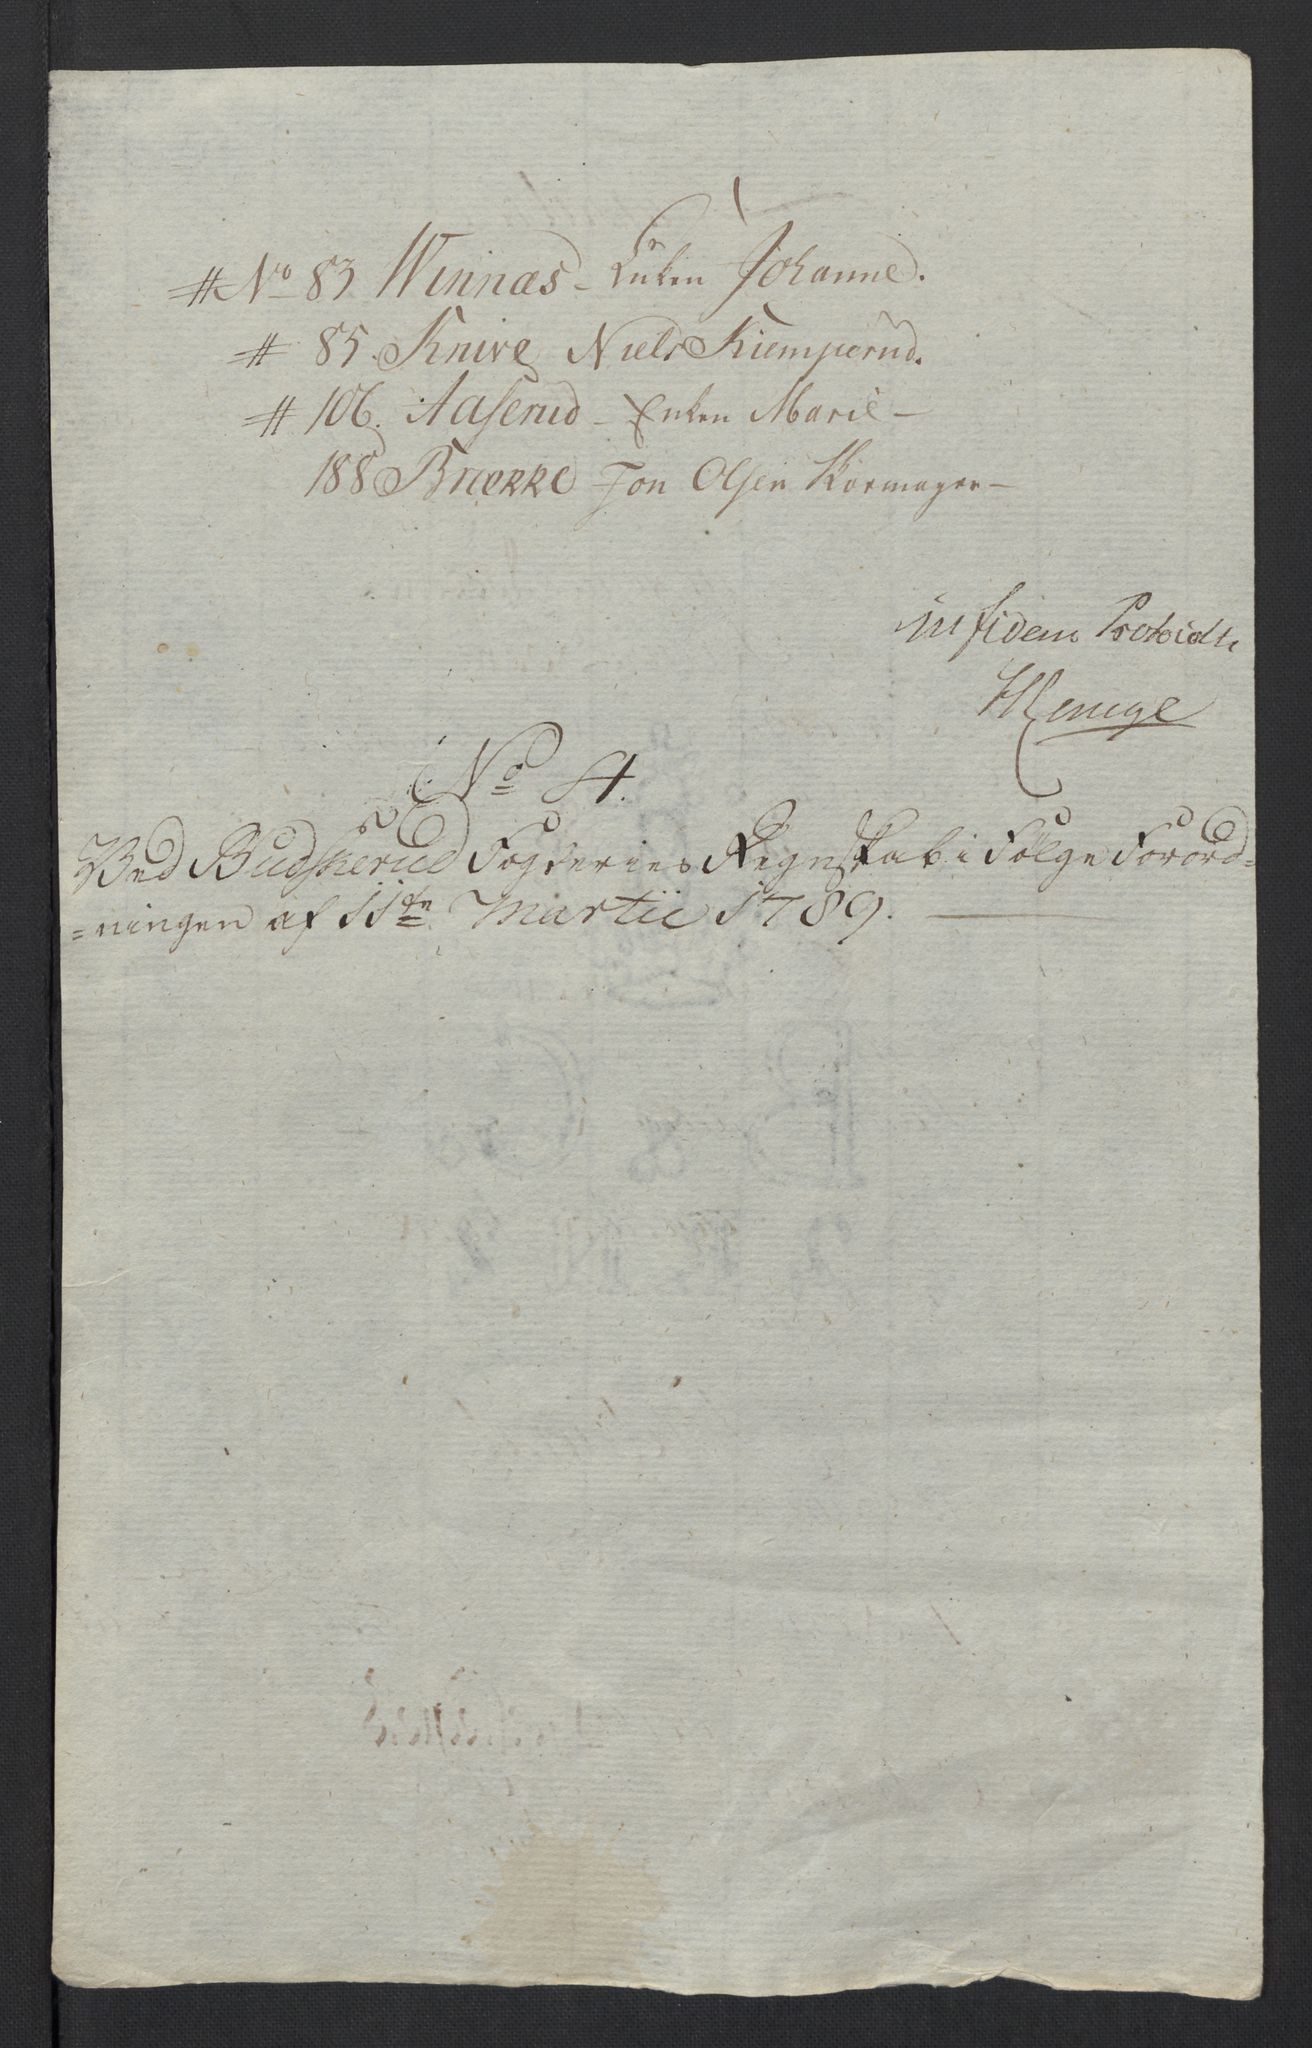 # No 83 Winnæs - Enken Johanne.
# 85. Knive Niels Kiemperud.
# 106. Aaserud - Enken Marie -
188 Brække Jon Olsen Skormager -
in fidem Protocolli
No 4.
Ved Budskerud Fogderies Regnskab i Følge Forord=
=ningen af 11te Martii 1789.